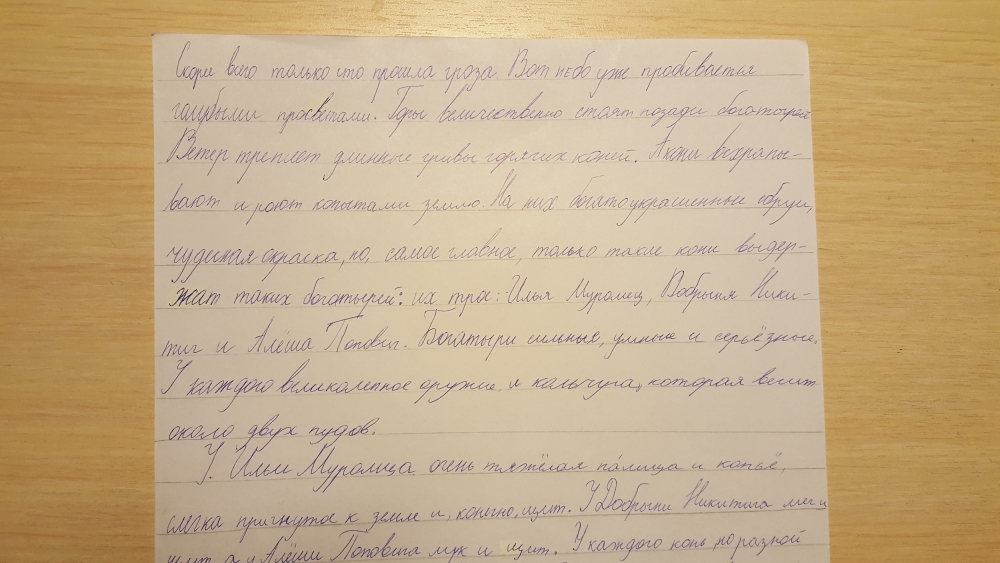 Скорей всего только что прошла гроза. Вот небо уже пробивается
голубыми просветами. Горы величественно стоят позади богатырей
Ветер треплет длинные гривы горячих коней. А кони всхрапы-
вают и роют копытами землю На них богато украшенные сбруи,
чудесная окраска, но, самое главное, только такие кони выдер-
жат таких богатырей: их трое: Илья Муромец, Добрыня Ники-
тич и Алёша Попович. Богатыри сильные, умные и серьёзные.
У каждого великолепное оружие и кольчуга, которая весит
около двух пудов.
У Ильи Муромца очень тяжёлая палица и копьё,
слегка пригнутое к земле и, конечно, щит. У Добрыни Никитича меч и
щит, а у Алёши Поповича лук и щит. У каждого конь по разной